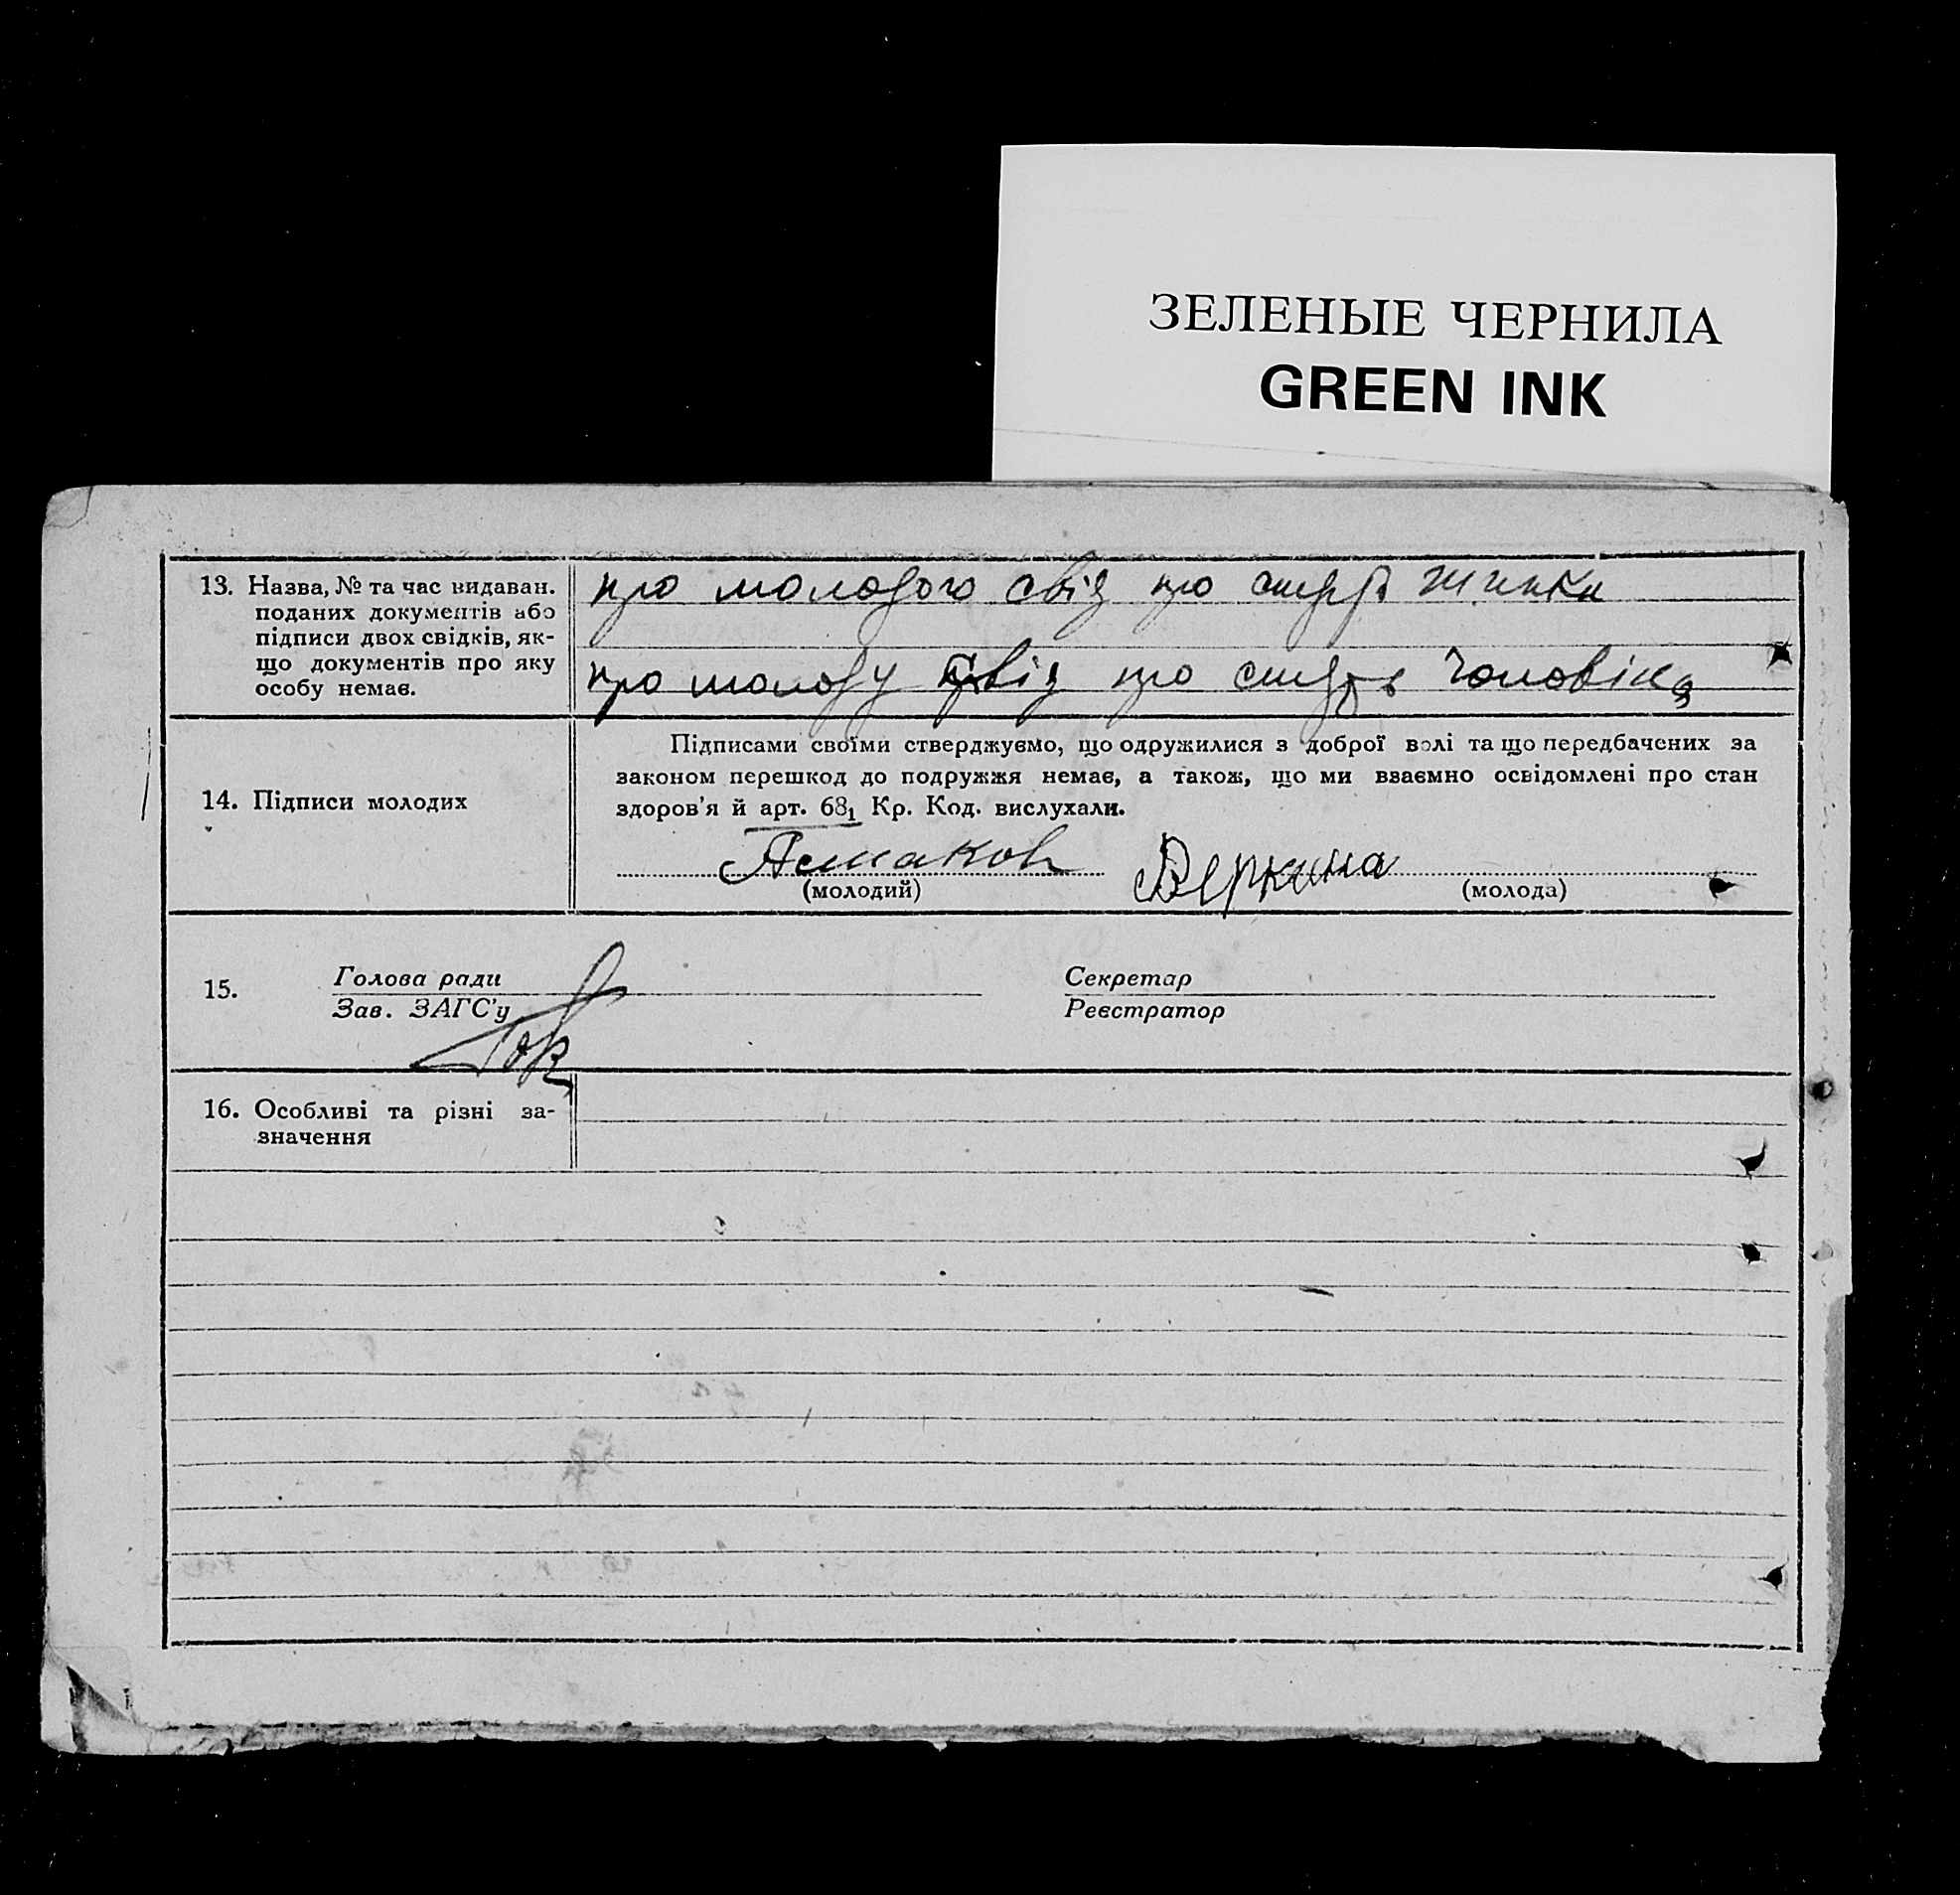 ЗЕЛЕНЫЕ ЧЕРНИЛА
GREEN INK
13. Назва, № та час видаван.
поданих документів або
підписи двох свідків, як-
що документів про яку
особу немає.
про молодого свід про смерть жинки
про молоду свід про смерть чоловіка
14. Підписи молодих
Підписами своїми стверджуємо, що одружилися з доброї волі та що передбачених за
законом перешкод до подружжя немає, а також, що ми взаємно освідомлені про стан
здоров'я й арт. 68₁ Кр. Код. вислухали.
(молодий)
(молода)
15.
Голова ради
Зав. ЗАГС'у
Секретар
Реєстратор
16. Особливі та різні за-
значення